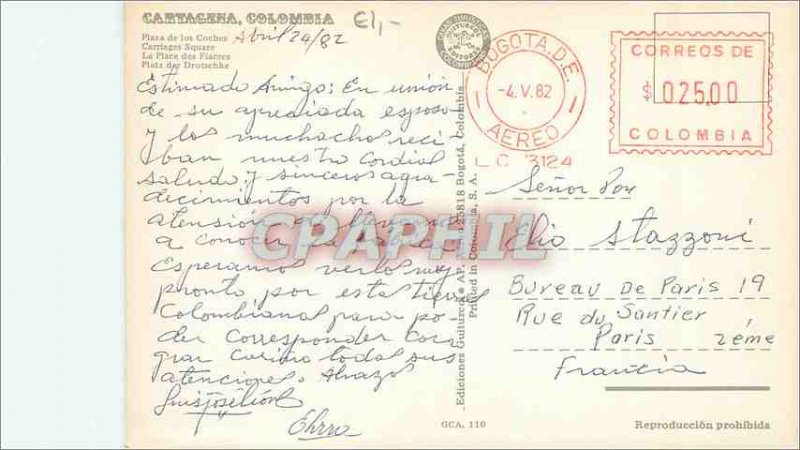 CARTAGENA, COLOMBIA £1,-
Plaza de los Coches Abril 24/82
Carriages Square
La Place des Fiacres
Platz der Drotschke
Estimado Amigo: En unión
de su apreciada esposa
y los muchachos reci
ban nuestro Cordial
saludo y sinceros agra-
decimientos por la
atensión
a conocer
Esperamos verlos muy
pronto por esta tierra
Colombiana para po-
der Corresponder con
gran Cariño todas sus
atenciones. Abrazos
CPAPHIL
Ediciones Guitureco AP. 25818 Bogotá, Colombia.
Printed in Colombia, S. A.
BOGOTA.D.E.
-4.V.82
AEREO
L.C 3124
CORREOS DE
$ 025,00
COLOMBIA
Señor Don
Elio Stazzoni
Bureau de Paris 19
Rue du Santier
Paris 2éme
Francia
GCA. 110
Reproducción prohibida